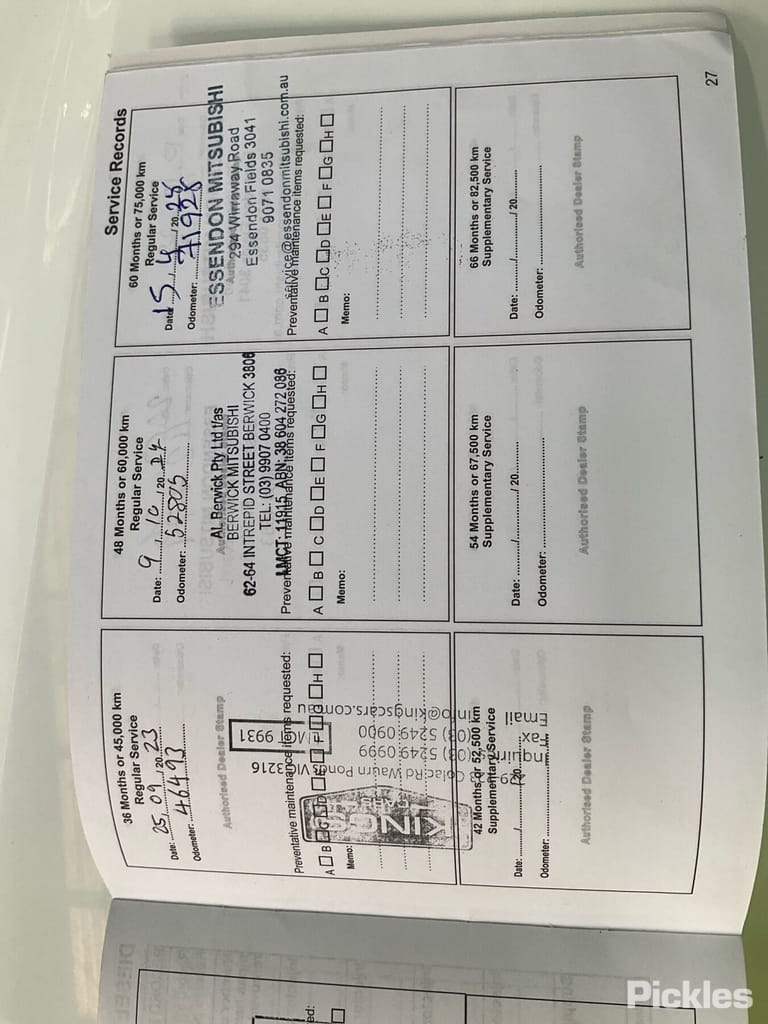 Service Records
36 Months or 45,000 km
Regular Service
Date: 25/09/2023
Odometer: 46493
Authorised Dealer Stamp
KINGS
CARS
Colac Rd Waurn Ponds VIC 3216
(03) 5249 0999
Fax (03) 5249 0900
Email info@kingscars.com.au
LMCT 9931
Preventative maintenance items requested:
A B C D E F G H
Memo:
48 Months or 60,000 km
Regular Service
Date: 9/10/2024
Odometer: 52805
AL Berwick Pty Ltd t/as
BERWICK MITSUBISHI
62-64 INTREPID STREET BERWICK 3806
TEL: (03) 9907 0400
LMCT: 11915 ABN: 38 604 272 086
Preventative maintenance items requested:
A B C D E F G H
Memo:
60 Months or 75,000 km
Regular Service
Date: 15/4/20
Odometer: 71928
ESSENDON MITSUBISHI
294 Wirraway Road
Essendon Fields 3041
9071 0835
service@essendonmitsubishi.com.au
Preventative maintenance items requested:
A B C D E F G H
Memo:
42 Months or 52,500 km
Supplementary Service
Date: / /20
Odometer:
Authorised Dealer Stamp
54 Months or 67,500 km
Supplementary Service
Date: / /20
Odometer:
Authorised Dealer Stamp
66 Months or 82,500 km
Supplementary Service
Date: / /20
Odometer:
Authorised Dealer Stamp
27
DIESEL
Pickles